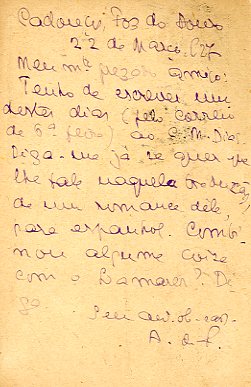 Cadouços, Foz do Douro
22 de Março 927
Meu m.º prezado amigo:
Tenho de escrever um
destes dias (pelo correio
de 6ª feira) ao S. M. Dia.
Diga-me já se quer que
lhe fale naquela
de um romance dele,
para espanhol. Combi-
nou alguma coisa
com o ? Di-
ga
Seu am. ob.
A. de F.